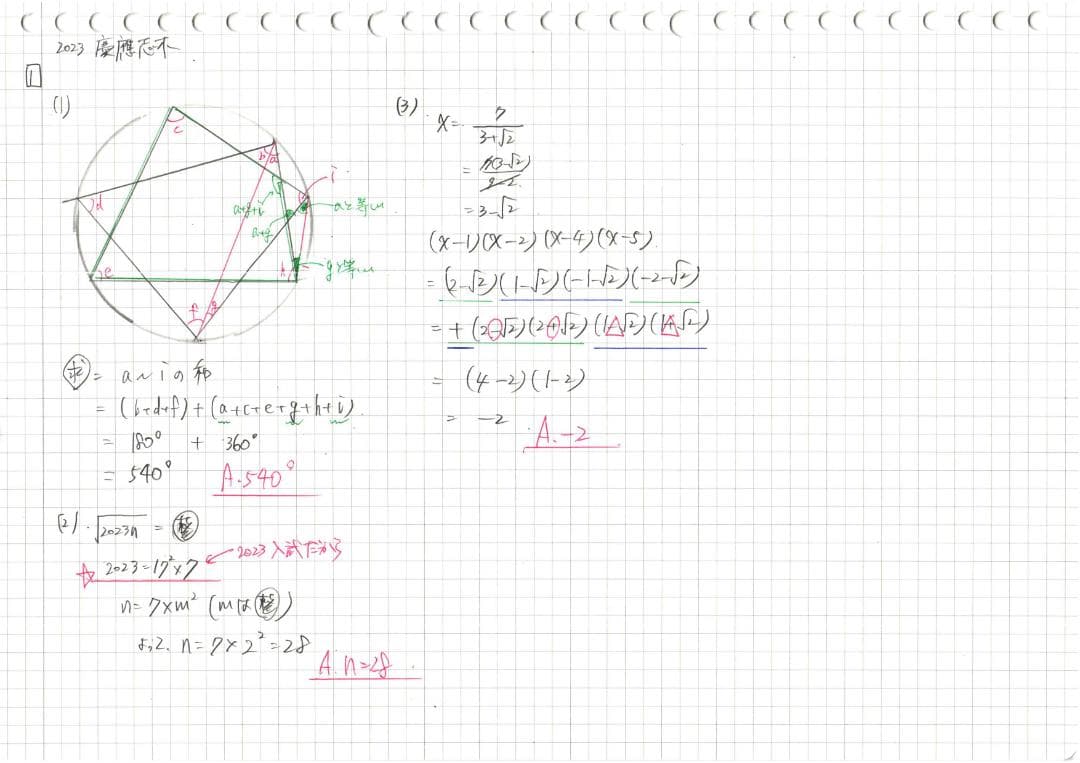 2023 慶應志木
1
(1)
c
b a
i
d
a+g+i
aと等しい
a+g
e
h
gと等しい
f g
求 = a〜iの和
= (b+d+f) + (a+c+e+g+h+i)
= 180° + 360°
= 540° A.540°
(2). √2023n = 整
2023=17²×7 2023入試だから
n= 7×m² (mは整)
よって、n=7×2²=28
A. n=28
(3).
x= 7/(3+√2)
= 7(3-√2)/(9-2)
=3-√2
(x-1)(x-2)(x-4)(x-5)
= (2-√2)(1-√2)(-1-√2)(-2-√2)
= + (2-√2)(2+√2)(1-√2)(1+√2)
= (4-2)(1-2)
= -2
A.-2